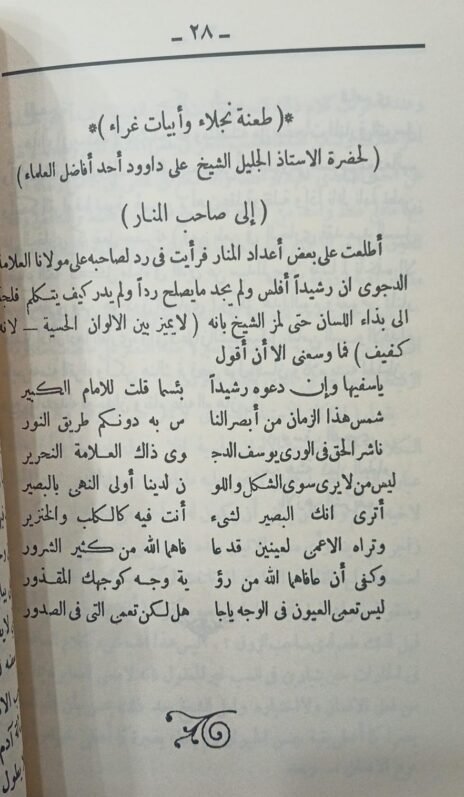 — ٢٨ —
*( طعنة نجلاء وأبيات غراء )*
( لحضرة الاستاذ الجليل الشيخ على داوود أحد أفاضل العلماء )
( إلى صاحب المنار )
أطلعت على بعض أعداد المنار فرأيت فى رد لصاحبه على مولانا العلامة
الدجوى ان رشيداً أفلس ولم يجد مايصلح رداً ولم يدر كيف يتكلم فلجأ
الى بذاء اللسان حتى لمز الشيخ بانه ( لايميز بين الالوان الحسية — لانه
كفيف ) فما وسعنى الا أن أقول
ياسفيها وإن دعوه رشيداً بئسما قلت للامام الكبير
شمس هذا الزمان من أبصر النا س به دونكم طريق النور
ناشر الحق فى الورى يوسف الدجـ وى ذاك العلامة النحرير
ليس من لايرى سوى الشكل واللو ن لدينا أولى النهى بالبصير
أترى انك البصير لشىء أنت فيه كالكلب والخنزير
وتراه الاعمى لعينين قد عا فاهما الله من كثير الشرور
وكفى أن عافاهما الله من رؤ ية وجه كوجهك المقذور
ليس تعمى العيون فى الوجه ياجا هل لكن تعمى التى فى الصدور